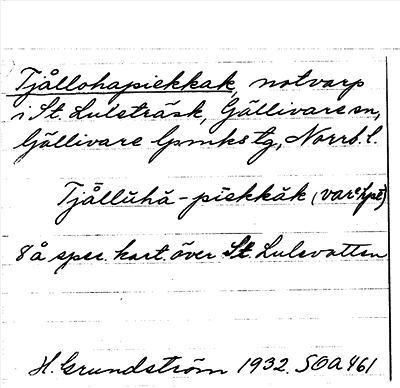 Tjållohapiekkak, notvarp
i St. Luleträsk, Gällivare sn,
Gällivare lpmks tg, Norrb. l.
Tjållŭhă-piekkăk (var. Lpe)
8 å spec. kart. över St. Lulevatten
H. Grundström 1932. SOA 461